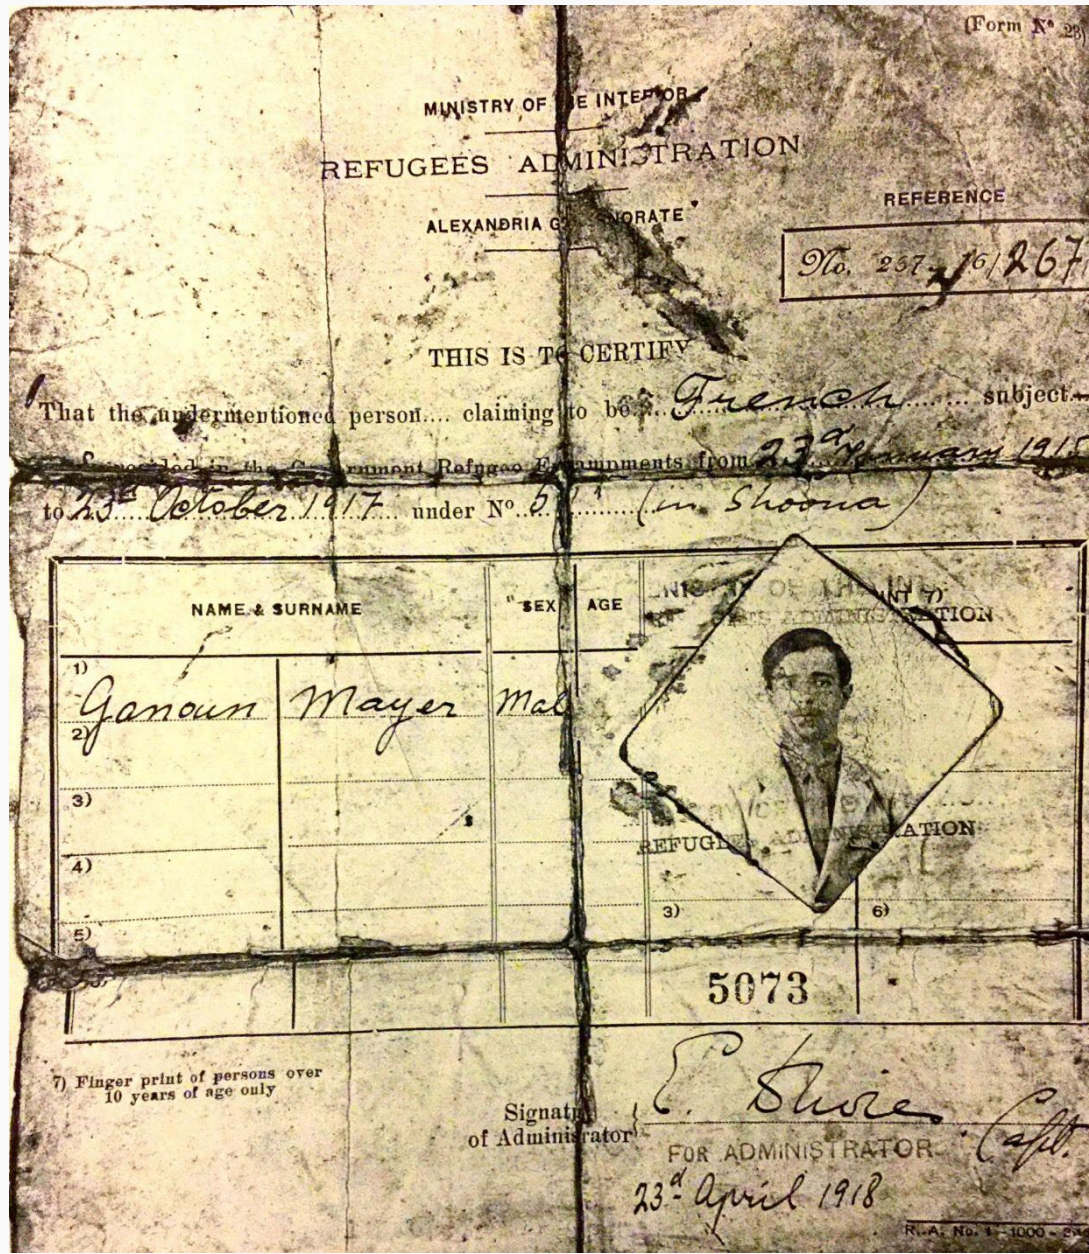 (Form Nº 23)
MINISTRY OF THE INTERIOR
REFUGEES ADMINISTRATION
ALEXANDRIA GOVERNORATE
REFERENCE
No. 237 16/267
THIS IS TO CERTIFY
That the undermentioned person.... claiming to be French subject
resided in the Government Refugee Encampments from 23d
to 23d October 1917 under Nº (in Shoona)
NAME & SURNAME SEX AGE
1) Ganoun Mayer Mal
2)
3)
4)
5)
REFUGEES ADMINISTRATION
3) 6)
5073
7) Finger print of persons over
10 years of age only
Signature
of Administrator
Capt.
FOR ADMINISTRATOR
23d April 1918
R. A. No. 1-1000-